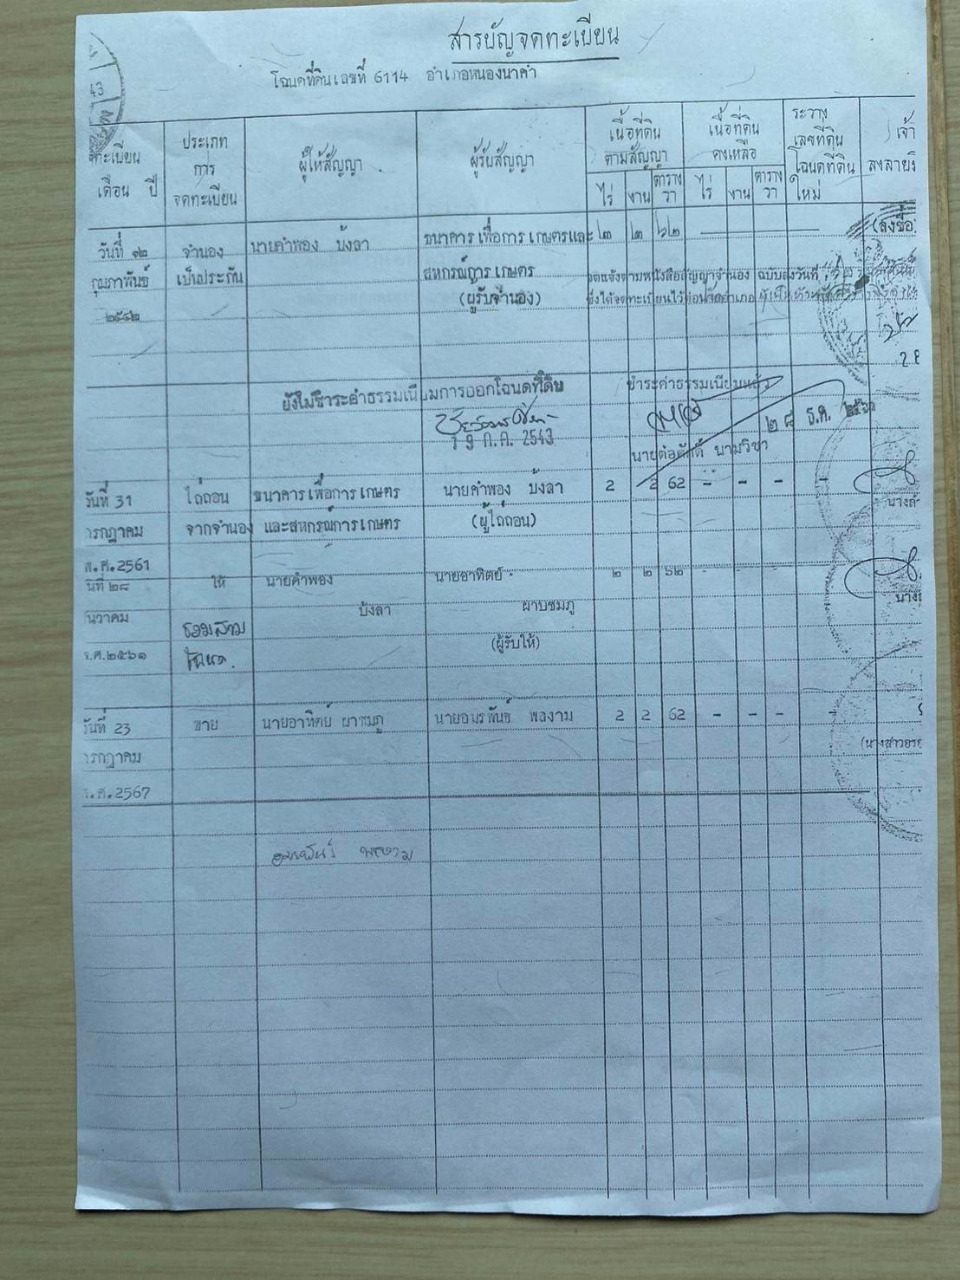 สารบัญจดทะเบียน
โฉนดที่ดินเลขที่ 6114 อำเภอหนองนาคำ
43
ทะเบียน
เดือน ปี
ประเภท
การ
จดทะเบียน
ผู้ให้สัญญา
ผู้รับสัญญา
เนื้อที่ดิน
ตามสัญญา
ไร่ งาน ตาราง
วา
เนื้อที่ดิน
คงเหลือ
ไร่ งาน ตาราง
วา
ระวาง
เลขที่ดิน
โฉนดที่ดิน
ใหม่
เจ้า
ลงลายมื
วันที่ ๑๒ จำนอง นายคำพอง บังลา ธนาคารเพื่อการเกษตรและ ๒ ๒ ๖๒ (ลงชื่อ)
กุมภาพันธ์ เป็นประกัน สหกรณ์การเกษตร จดแจ้งตามหนังสือสัญญาจำนอง ฉบับลงวันที่
๒๕๔๒ (ผู้รับจำนอง) ซึ่งได้จดทะเบียนไว้ต่อ
ยังไม่ชำระค่าธรรมเนียมการออกโฉนดที่ดิน ชำระค่าธรรมเนียมแล้ว
19 ก.ค. 2543 ๒๘ ธ.ค. ๒๕๖๑
นายต่อศักดิ์ นามวิชา
วันที่ 31 ไถ่ถอน ธนาคารเพื่อการเกษตร นายคำพอง บังลา 2 2 62 - - - -
กรกฎาคม จากจำนอง และสหกรณ์การเกษตร (ผู้ไถ่ถอน)
พ.ศ.2561
วันที่ ๒๘ ให้ นายคำพอง นายอาทิตย์ ๒ ๒ ๖๒ - - - -
ธันวาคม บังลา ผาบชมภู
พ.ศ.๒๕๖๑ รวมสาม (ผู้รับให้)
โฉนด.
วันที่ 23 ขาย นายอาทิตย์ ผาบชมภู นายอมรพันธ์ พลงาม 2 2 62 - - - -
กรกฎาคม (นางสาวอร
พ.ศ.2567
อมรพันธ์ พลงาม